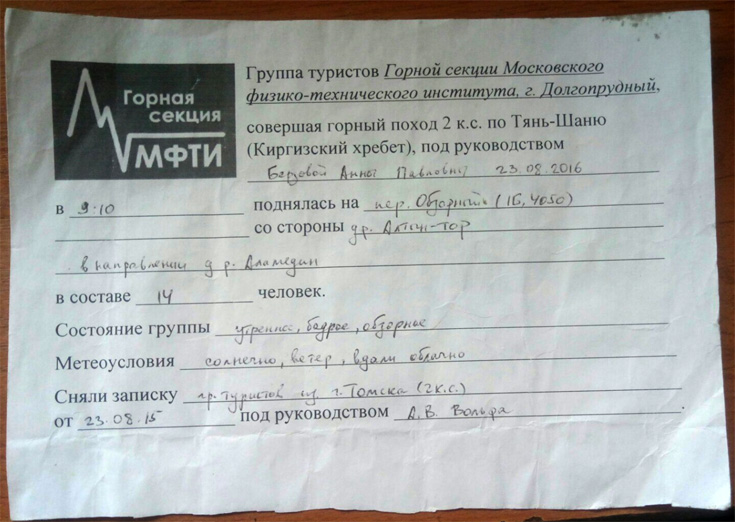 Горная
секция
МФТИ
Группа туристов Горной секции Московского
физико-технического института, г. Долгопрудный,
совершая горный поход 2 к.с. по Тянь-Шаню
(Киргизский хребет), под руководством
Анны Павловны 23.08.2016
в 9:10 поднялась на пер. Обзорный (1Б, 4050)
со стороны др. Алтын-Тор
в направлении д.р. Аламедин
в составе 14 человек.
Состояние группы утреннее, бодрое, обзорное
Метеоусловия солнечно, ветер, вдали облачно
Сняли записку гр. туристов из г. Томска (2 к.с.)
от 23.08.15 под руководством А.В. Вольфа.